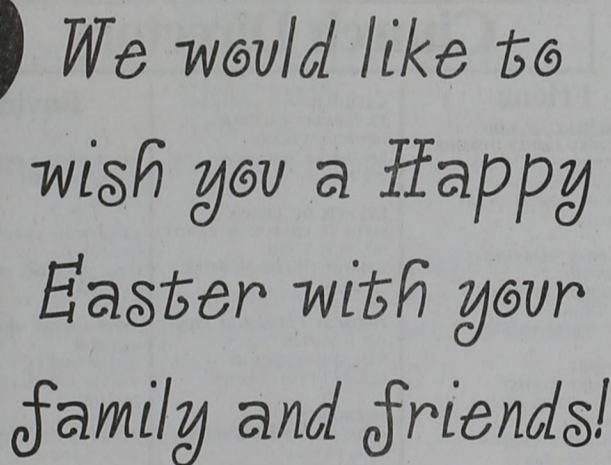 We would like to
wish you a Happy
Easter with your
family and friends!